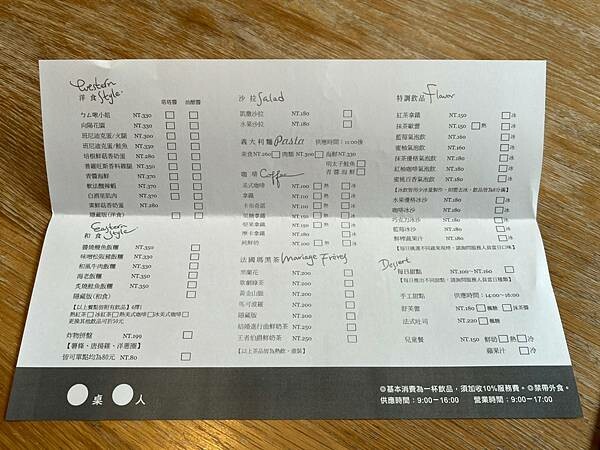 Western Style
洋食
塔塔醬 油醋醬
ㄅㄆ啾小姐 NT.330
向陽花園 NT.330
班尼迪克蛋/火腿 NT.300
班尼迪克蛋/鮭魚 NT.330
培根鮮菇香奶蛋 NT.280
普羅旺斯香料雞腿 NT.350
青醬海鮮 NT.370
軟法酸辣蝦 NT.370
白酒里肌肉 NT.350
蜜鮮菇香奶蛋 NT.280
隱藏版(洋食)
Eastern Style
和食
醬燒鰻魚飯糰 NT.350
味噌松阪豬飯糰 NT.330
和風牛肉飯糰 NT.330
海老飯糰 NT.350
炙燒鮭魚飯糰 NT.350
隱藏版(和食)
【以上餐點皆附有飲品】6擇1
熱紅茶 冰紅茶 熱美式咖啡 冰美式咖啡
更換其他飲品可折50元
炸物拼盤 NT.199
【薯條、唐揚雞、洋蔥圈】
皆可單點均為80元 NT.80
沙拉 Salad
凱撒沙拉 NT.180
水果沙拉 NT.180
義大利麵 Pasta 供應時間:11:00後
素食NT.260 肉類NT.300 海鮮NT.330
明太子鮭魚
青醬海鮮
咖啡 Coffee
美式咖啡 NT.100 熱 冰
拿鐵 NT.150 熱 冰
卡布奇諾 NT.150 熱 冰
NT.180 熱 冰
NT.180 熱 冰
摩卡拿鐵 NT.180 熱 冰
純鮮奶 NT.100 熱 冰
法國瑪黑茶 Mariage Frères
黑蘭花 NT.200
歌劇綠茶 NT.200
黃金山脈 NT.200
馬可波羅 NT.200
隱藏版 NT.200
結婚進行曲鮮奶茶 NT.250
王者伯爵鮮奶茶 NT.250
【以上茶品皆為熱飲,壺裝】
特調飲品 Flavor
紅茶拿鐵 NT.150 冰
抹茶歐蕾 NT.150 熱 冰
藍莓氣泡飲 NT.160 冰
蜜柚氣泡飲 NT.160 冰
抹茶優格氣泡飲 NT.180 冰
紅柚咖啡氣泡飲 NT.160 冰
蜜桃百香氣泡飲 NT.160 冰
水果優格冰沙 NT.180 冰
咖啡冰沙 NT.180 冰
巧克力冰沙 NT.180 冰
藍莓冰沙 NT.180 冰
鮮榨蔬果汁 NT.180 冰
Dessert
每日甜點 NT.100~NT.160
【每日推出不同甜點,請詢問服務人員當日種類】
手工甜點 供應時間:14:00~16:00
舒芙蕾 NT.180 楓糖 抹茶醬
法式吐司 NT.220 楓糖
兒童餐 NT.150 鮮奶 熱 冰
蘋果汁 冰
桌 人
◎基本消費為一杯飲品,須加收10%服務費。◎禁帶外食。
供應時間:9:00-16:00 營業時間:9:00-17:00